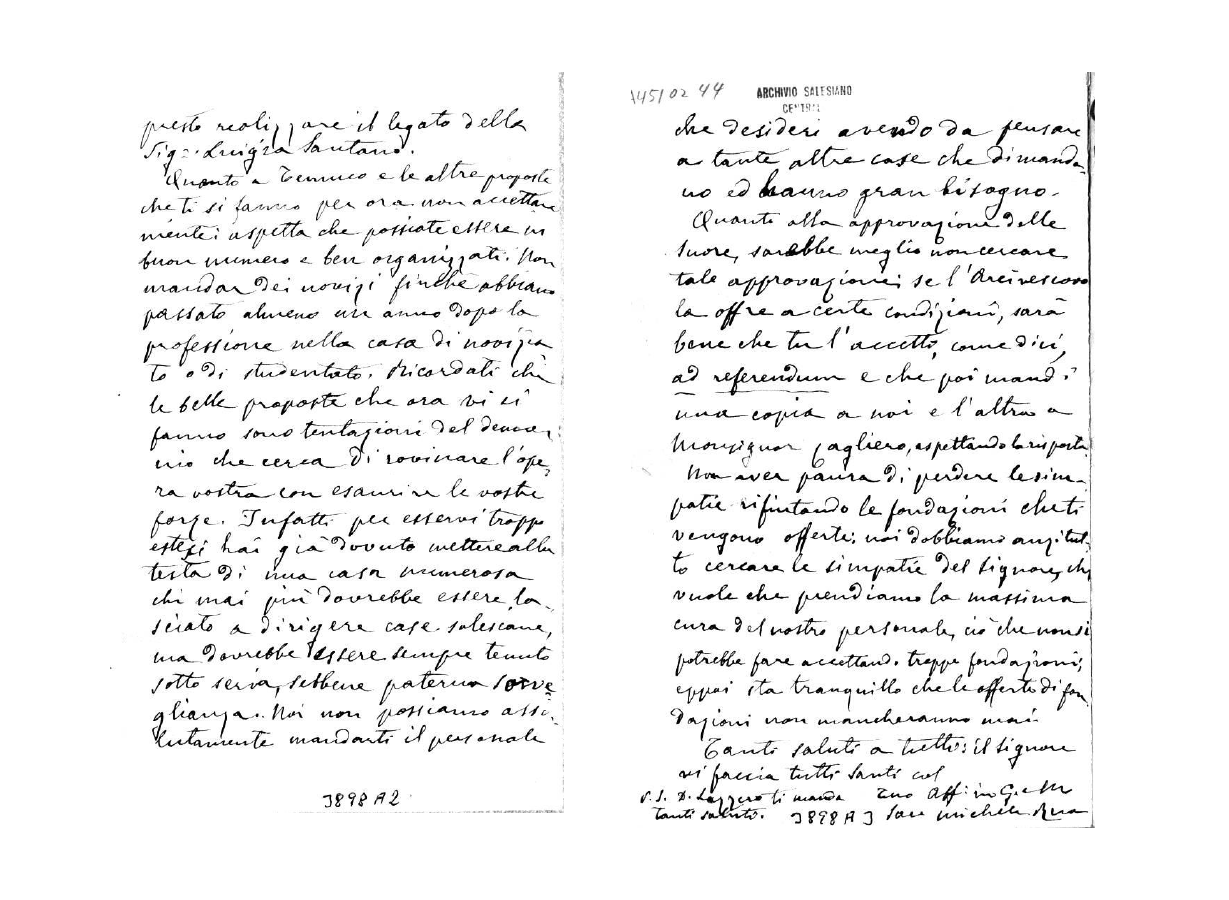 presto realizzare il legato della
Sig.ra Luigia Santano.
Quanto a Temuco e le altre proposte
che ti si fanno per ora non accettare
niente: aspetta che possiate essere in
buon numero e ben organizzati. Non
mandar dei novizi finchè abbiano
passato almeno un anno dopo la
professione nella casa di novizia
to o di studentato. Ricordati che
le belle proposte che ora vi si
fanno sono tentazioni del demo
nio che cerca di rovinare l'ope
ra vostra con esaurire le vostre
forze. Infatti per esservi troppo
estesi hai già dovuto mettere alla
testa di una casa numerosa
chi mai più dovrebbe essere la-
sciato a dirigere case salesiane,
ma dovrebbe essere sempre tenuto
sotto seria, sebbene paterna sorve
glianza. Noi non possiamo asso-
lutamente mandarti il personale
3898 A 2
145/02 44
ARCHIVIO SALESIANO
CENTRALE
che desideri avendo da pensare
a tante altre case che dimanda-
no ed hanno gran bisogno.
Quanto alla approvazione delle
Suore, sarebbe meglio non cercare
tale approvazione; se l'Arcivescovo
la offre a certe condizioni, sarà
bene che tu l'accetti, come dici,
ad referendum e che poi mandi
una copia a noi e l'altra a
Monsignor Cagliero, aspettando la risposta
Non aver paura di perdere le sim-
patie rifiutando le fondazioni che ti
vengono offerte: noi dobbiamo anzitut-
to cercare le simpatie del Signore, che
vuole che prendiamo la massima
cura del nostro personale, ciò che non si
potrebbe fare accettando troppe fondazioni;
eppoi sta tranquillo che le offerte di fon
dazioni non mancheranno mai.
Tanti saluti a tutti: il Signore
vi faccia tutti santi col
Tuo Aff.mo in G. e M.
Sac. Michele Rua
P.S. D. Lazzero ti manda
tanti saluti.
3898 A 3